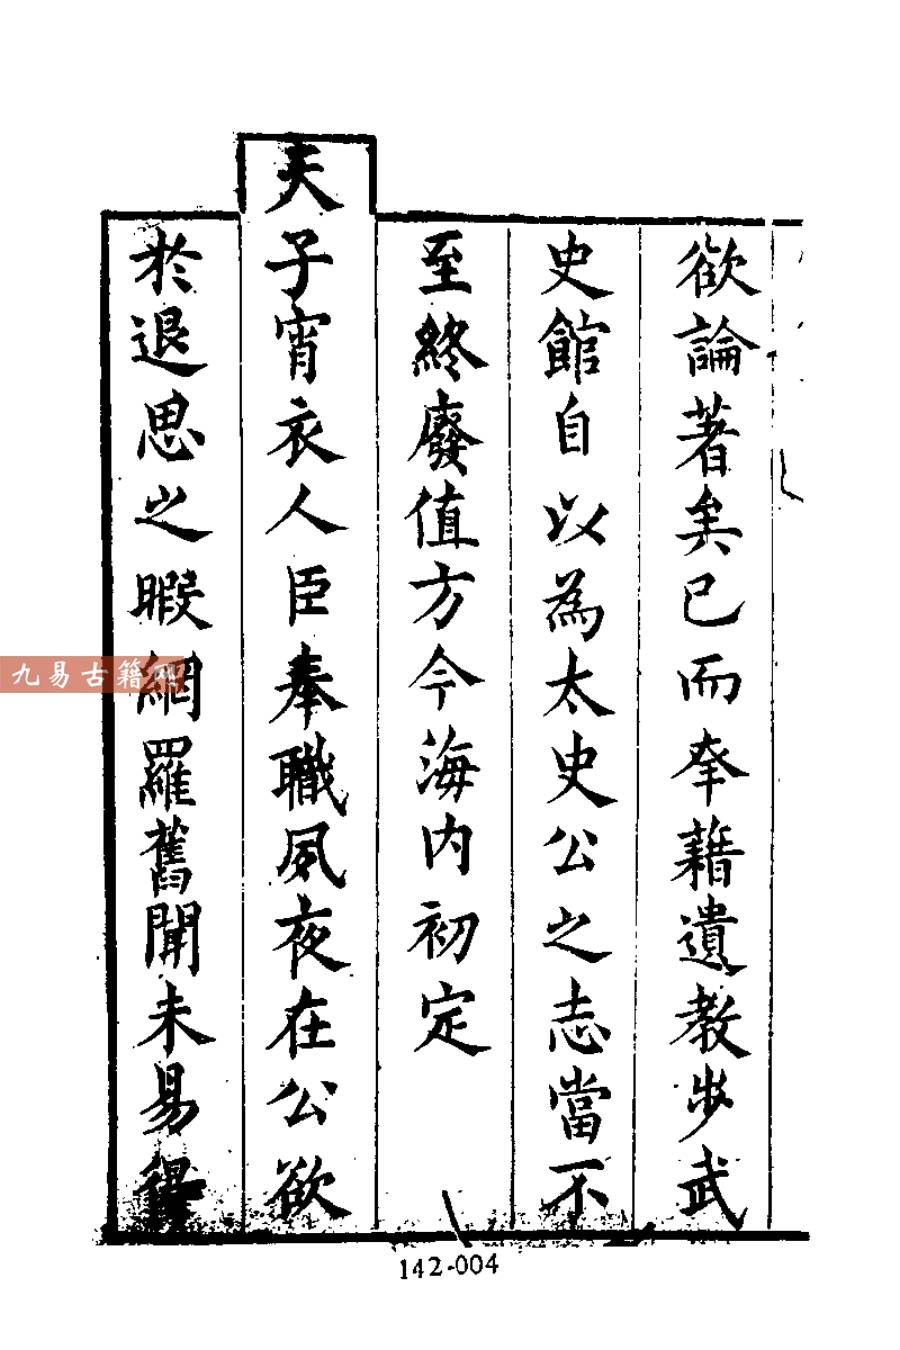 欲論著矣已而奉藉遺教步武
史館自以為太史公之志當不
至終廢值方今海内初定
天子宵衣人臣奉職夙夜在公欲
於退思之暇網羅舊聞未易得
九易古籍网
142-004